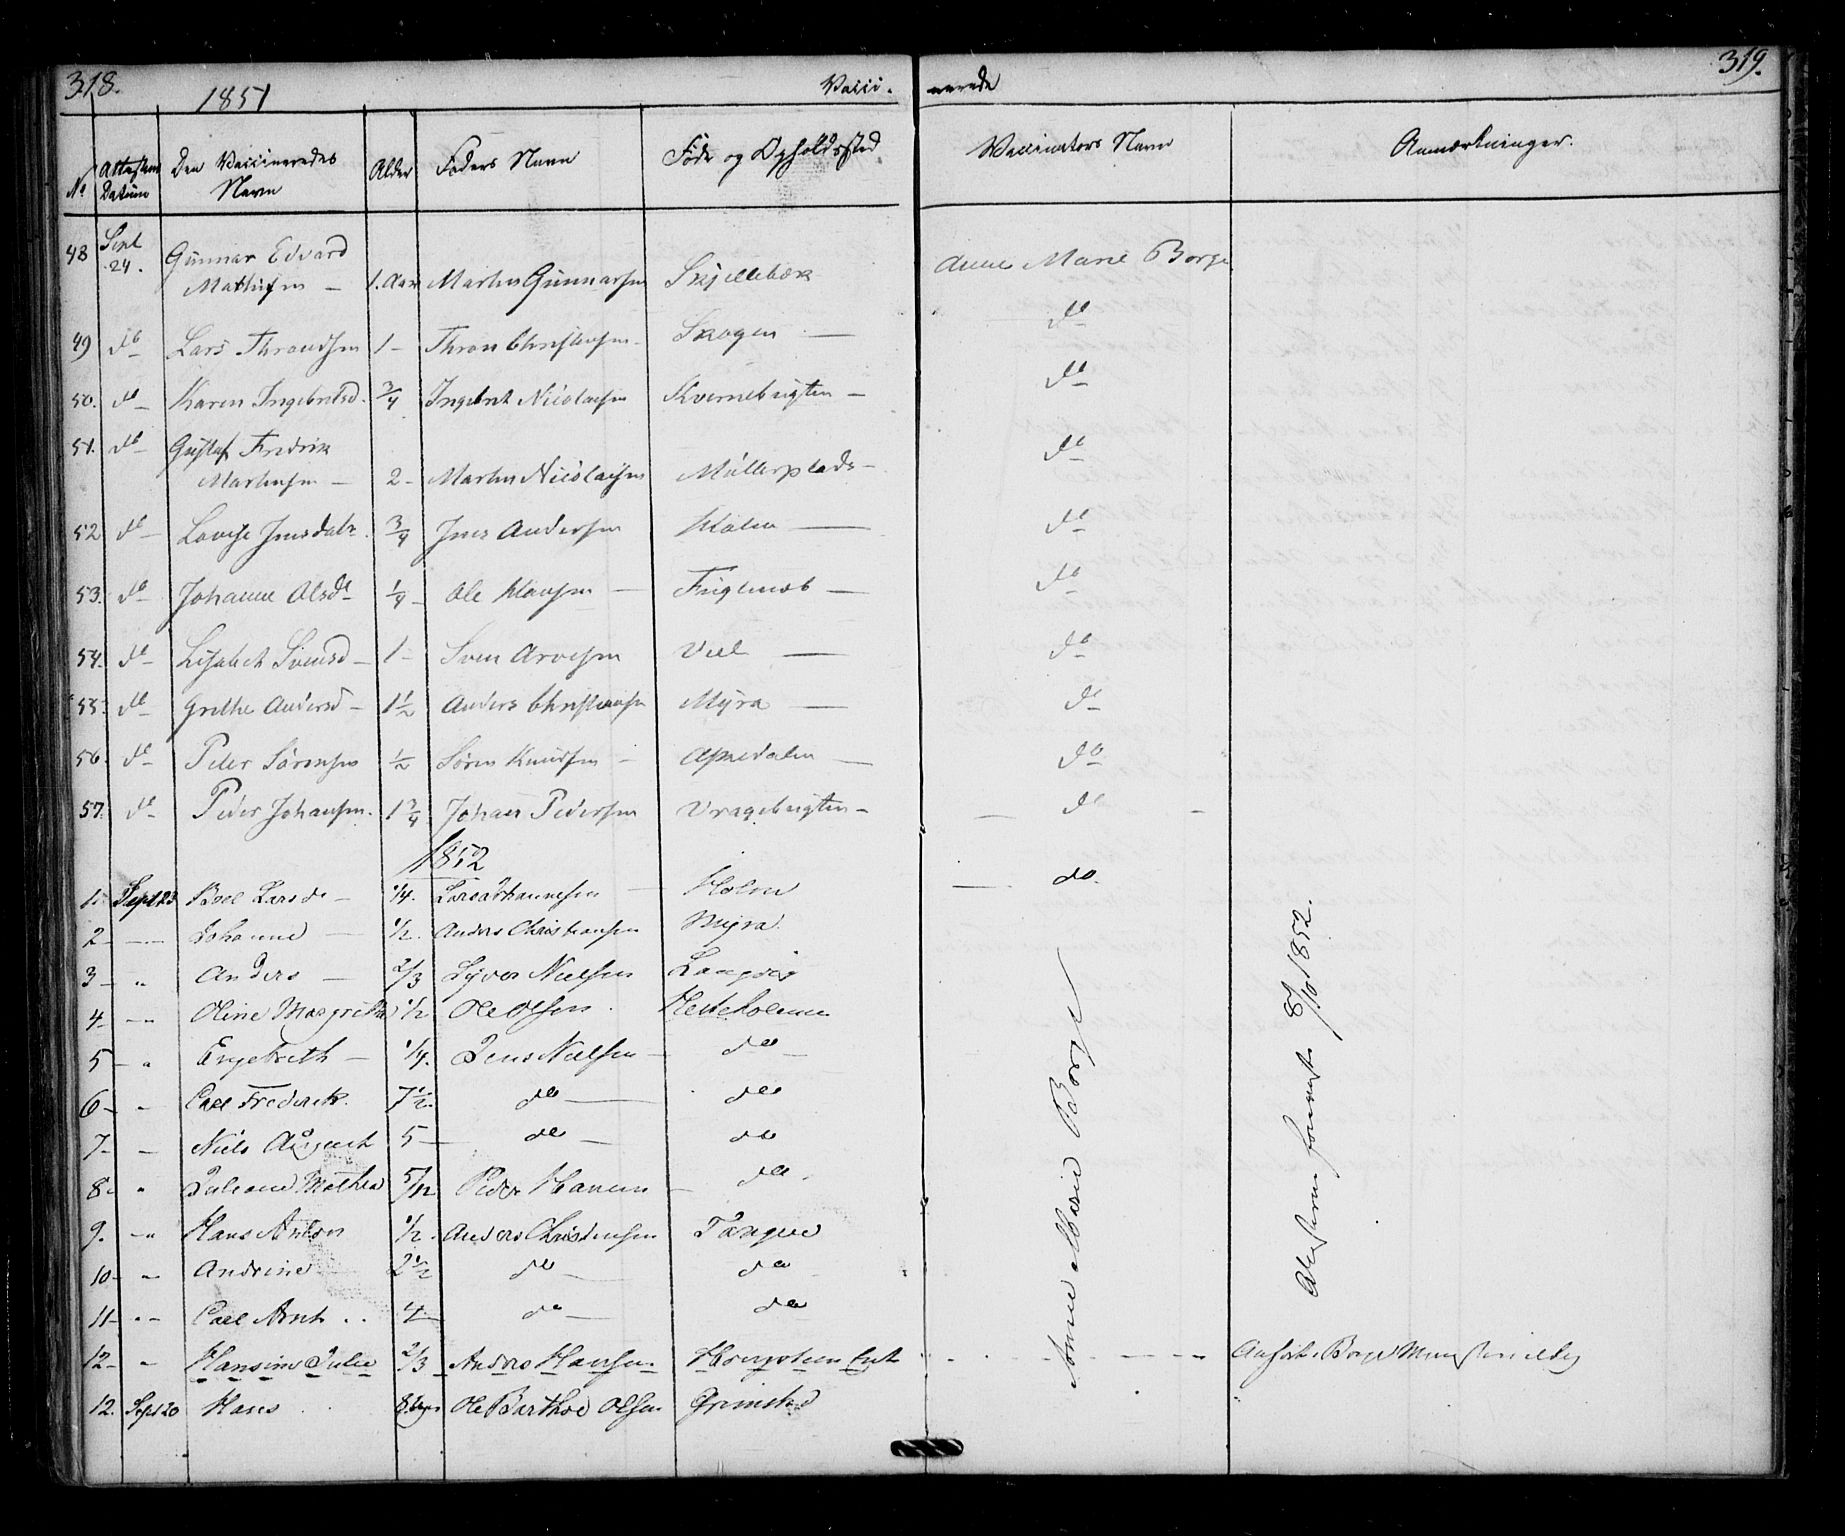 318. 1851 Vacci- nerede 319.
No Attestens Datum Den Vaccineredes Navn Alder Faders Navn Føde og Opholdssted Vaccinators Navn Anmærkninger.
48 Sept 24. Gunnar Edvard
Mathisen — 1. Aar Marten Gunnarsen Skjellebæk Anne Marie Borge
49 do Lars Throndsen 1 — Thron Christensen Skogen — do
50. do Karen Ingebretsd. 3/4 Ingebret Nicolaisen Kvernebugten — do
51. do Gustaf Fredrik
Martensen — 2 — Marten Nicolaisen Müllerplads — do
52 do Lovise Jensdatr. 3/4 Jens Andersen Holm — do
53. do Johanne Olsdr 1/4 Ole Klausen — do
54. do Lisabeth Svensd — 1 — Sven Arvesen — do
55. do Grethe Andersd — 1 1/2 Anders Christensen Myra — do
56. do Peder Sørensen 1/2 Søren Knudsen — do
57. do Peder Johansen. 1 3/4 Johan Pedersen Vragebugten — do
1852
1. Sept 23 Larsdr — 1/4. Lars Johannesen Holm do.
2 — Johanne 1/2. Anders Christensen Myra
3 — " Anders — 2/3 Syver Nielsen Langvig
4 — " Oline Margrethe 1/2 Ole Olsen Hesteholmen
5 — " Engebreth — 1/4. Jens Nielsen do
6 — " Carl Frederik. 7 1/2. do do
7 — Niels August 5 — do do
8. " Juliane Mathea 5/12 Peder Hansen do
9. " Hans Anton 1/2. Anders Christensen Tangen
10 — " Andrine 2 1/2 do do
11 — " Carl Arnt 4 — do do
12 — " Hansine Julie 2/3 Anders Hansen
12. Sept 20 Hans Ole Barthol Olsen Grimstad
Anne Marie Borge
8/10 1852.